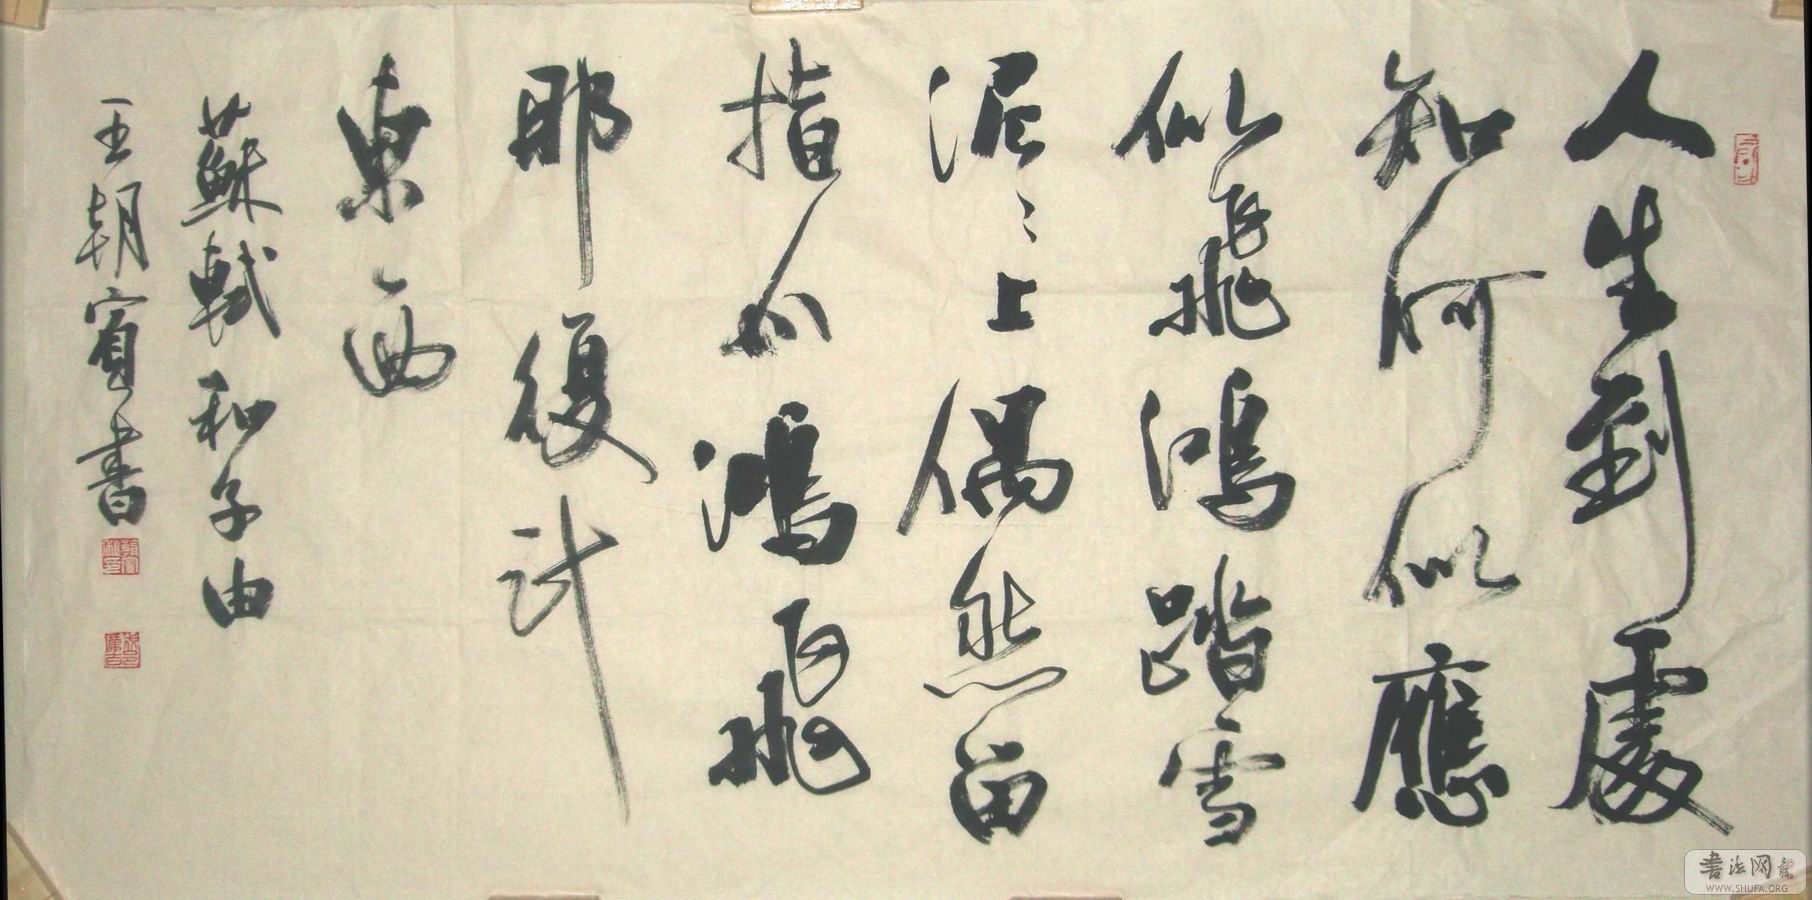 人生到處
知何似應
似飛鴻踏雪
泥々上偶然留
指爪鴻飛
那復計
東西
蘇軾和子由
王朝賓書
書法网
WWW.SHUFA.ORG